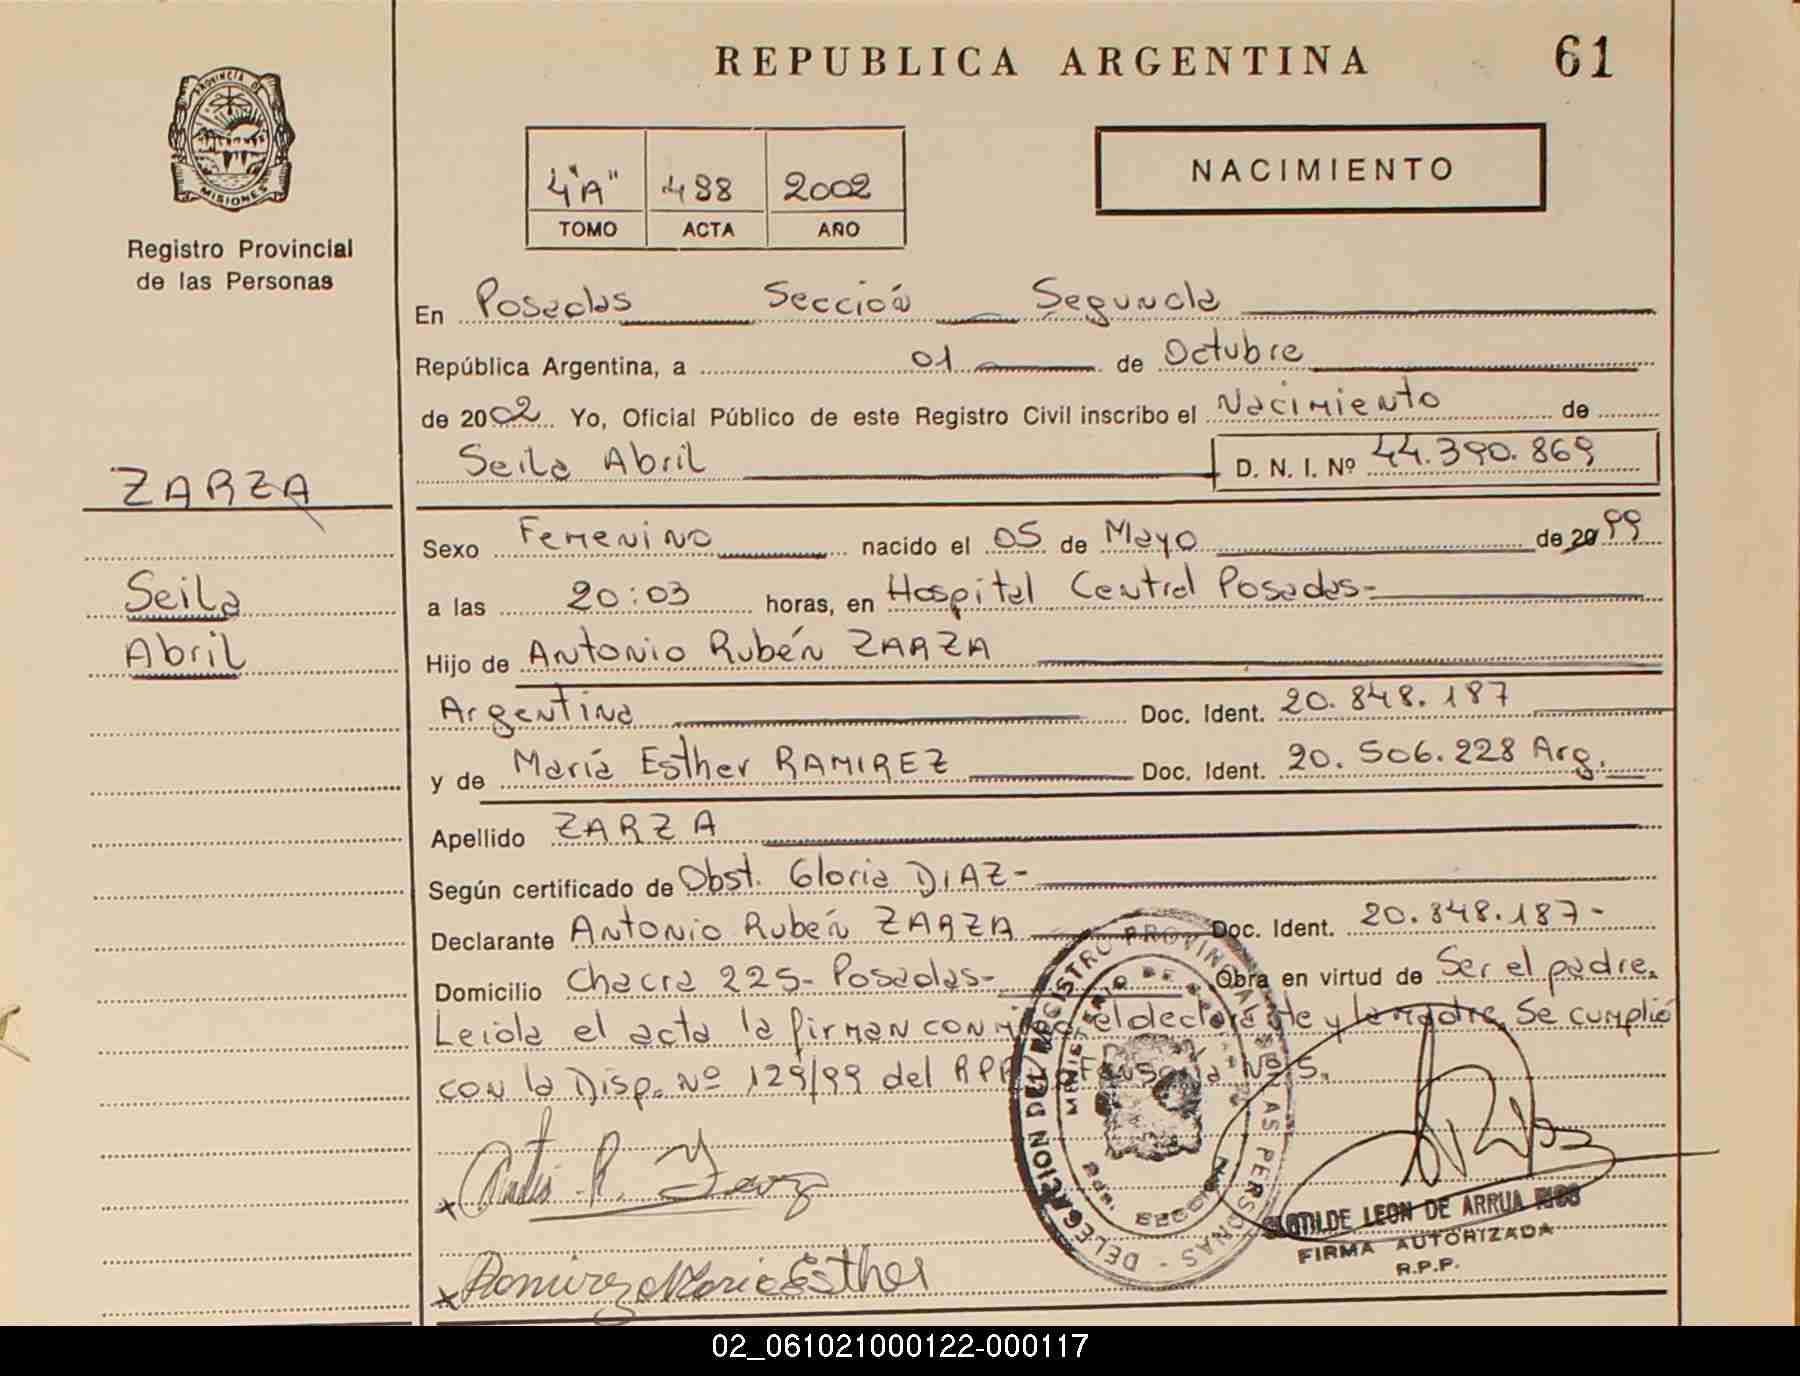 REPUBLICA ARGENTINA
61
PROVINCIA DE
MISIONES
Registro Provincial
de las Personas
4"A" 488 2002
TOMO ACTA AÑO
NACIMIENTO
En Posadas Sección Segunda
República Argentina, a 01 de Octubre
de 2002 Yo, Oficial Público de este Registro Civil inscribo el Nacimiento de
Seila Abril D. N. I. Nº 44.390.869
ZARZA
Seila
Abril
Sexo Femenino nacido el 05 de Mayo de 20 99
a las 20:03 horas, en Hospital Central Posadas-
Hijo de Antonio Rubén ZARZA
Argentina Doc. Ident. 20.848.187
y de María Esther RAMIREZ Doc. Ident. 20.506.228 Arg.
Apellido ZARZA
Según certificado de Obst. Gloria DIAZ-
Declarante Antonio Rubén ZARZA Doc. Ident. 20.848.187-
Domicilio Chacra 225- Posadas- Obra en virtud de Ser el padre.
Leida el acta la firman conmigo el declarante y la madre. Se cumplió
con la Disp. Nº 129/99 del RPP. Nº 5.
DELEGACION DEL REGISTRO PROVINCIAL DE LAS PERSONAS -
MINISTERIO DE
x Antonio R. Zarza
x Ramirez Maria Esther
CLOTILDE LEON DE ARRUA RIOS
FIRMA AUTORIZADA
R.P.P.
02_061021000122-000117